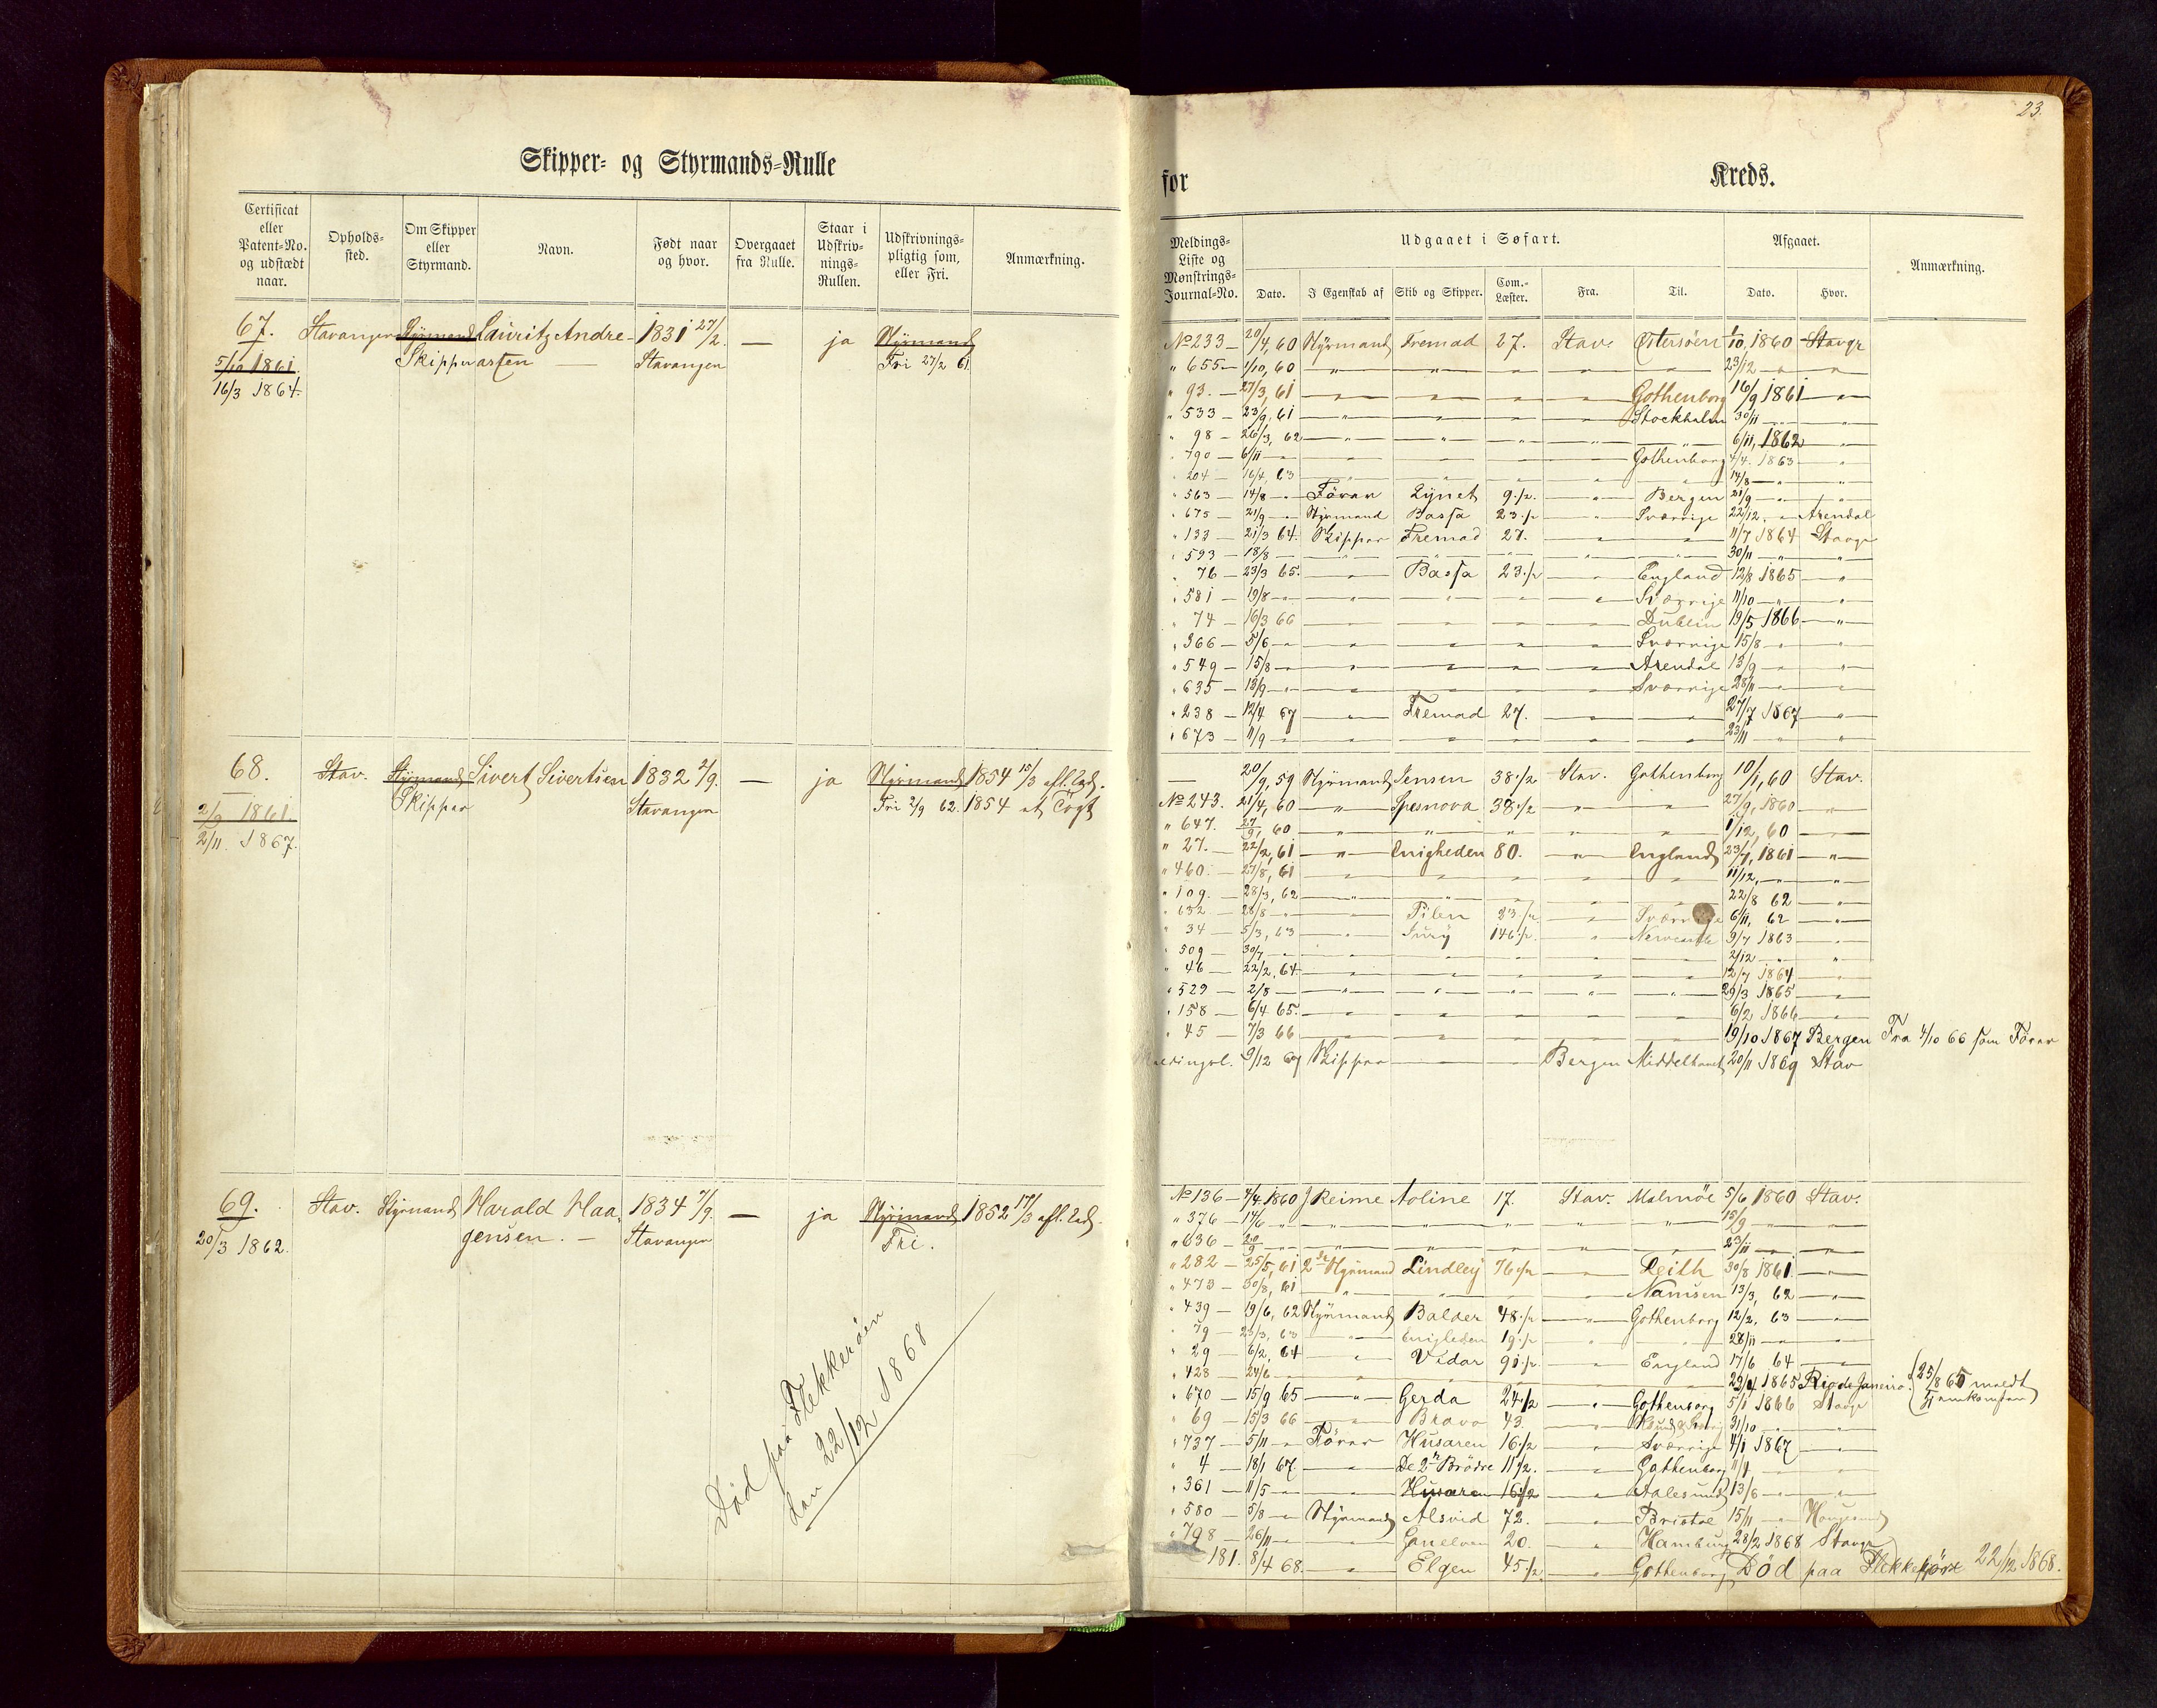 Skipper- og Styrmands-Rulle
Certificat eller Patent-No. og udstædt naar.
Opholds-sted.
Om Skipper eller Styrmand.
Navn.
Født naar og hvor.
Overgaaet fra Rulle.
Staar i Udskriv-nings-Rullen.
Udskrivnings-pligtig som, eller Fri.
Anmærkning.
67. Stavanger Styrmand Lauritz Andre- 1831 27/2. — ja Styrmand
5/10 1861. Skipper assen — Stavanger Fri 27/2 61
16/3 1864.
68. Stav. Styrmand Sivert Sivertsen 1832 2/9. — ja Styrmand 1854 15/3 afl. Ed.
2/9 1861. Skipper Stavanger Fri 2/9 62. 1854 et Togt
2/11. 1867.
69. Stav. Styrmand Harald Haa- 1834 7/9. — ja Styrmand 1852 17/3 afl. Ed.
20/3 1862. gensen. — Stavanger Fri.
Død paa Flekkerøen
den 22/12 1868
23.
for Kreds.
Meldings-Liste og Mønstrings-Journal-No.
Udgaaet i Søfart.
Dato.
I Egenskab af
Skib og Skipper.
Com.-Læster.
Fra.
Til.
Afgaaet.
Dato.
Hvor.
Anmærkning.
No 233 — 20/4, 60 Styrmand Fremad 27. Stav. Østersøen 1/10, 1860 Stavgr
" 655 — 1/10, 60 " " " " " 23/12 " "
" 93. — 27/3, 61 " " " " Gothenborg 16/9 1861 "
" 533 — 23/9, 61 " " " " Stockholm 30/11 " "
" 98 — 26/3, 62 " " " " " 6/11, 1862 "
" 790 — 6/11 " " " " " Gothenborg 4/4. 1863 "
" 204 — 16/4, 63 " " " " " 14/8 " "
" 563 — 14/8 " Fører Lynet 9 1/2. " Bergen 21/9 " "
" 675 — 21/9 " Styrmand Bassa 23 1/2 " Sverrige 22/12. " Arendal
" 133 — 21/3 64. Skipper Fremad 27. " " 11/7 1864 Stavgr
" 593 — 18/8 " " " " " " 30/11 " "
" 76 — 23/3 65. " Bassa 23 1/2 " England 12/8 1865 "
" 581 — 19/8 " " " " " Sverrige 11/10 " "
" 74 — 16/3 66 " " " " Dublin 19/5 1866 "
" 366 — 5/6 " " " " " Sverrige 15/8 " "
" 549 — 15/8 " " " " " Arendal 13/9 " "
" 635 — 13/9 " " " " " Sverrige 28/11 " "
" 238 — 12/4 67 " Fremad 27. " " 27/7 1867 "
" 673 — 11/9 " " " " " " 23/11 " "
— 20/9, 59 Styrmand Jensen 38 1/2 Stav. Gothenborg 10/1, 60 Stav.
No 243. 21/4, 60 " Spesnova 38 1/2 " " 27/9, 1860 "
" 647. 27/9, 60 " " " " " 1/12, 60 "
" 27. — 22/2, 61 " Enigheden 80. " England 23/7, 1861 "
" 460. — 27/8, 61 " " " " " 11/12, " "
" 109. — 28/3, 62 " " " " " 22/8 62 "
" 632 — 28/8 " " Pilen 23 1/2. " Sverrige 6/11, 62 "
" 34 — 5/3, 63 " Jury 146 1/2. " 9/7 1863 "
" 509 — 30/7 " " " " " " 2/12 " "
" 46 — 22/2, 64. " " " " " 12/7 1864 "
" 529 — 2/8 " " " " " " 29/3 1865 "
" 158 — 6/4 65. " " " " " 6/2 1866 "
" 45 — 7/3 66 " " " " " 19/10 1867 Bergen Fra 4/10 66 som Fører
9/12 67 Skipper " " Bergen Middelhavet 20/11 1869 Stav
No 136 — 4/4 1860 J Reime Noline 17. Stav. Malmøe 5/6 1860 Stav.
" 376 — 14/6 " " " " " " 15/9 " "
" 636 — 20/9 " " " " " " 23/11 " "
" 282 — 25/5, 61 2de Styrmand Lindley 76 1/2 " Leith 30/8 1861. "
" 473 — 30/8, 61 " " " " Namsen 13/3, 62 "
" 439 — 19/6, 62 Styrmand Balder 48 1/2 " Gothenborg 12/2, 63 "
" 79 — 23/3, 63 " Enigheden 19 1/2 " " 28/11 " "
" 29 — 6/2, 64 " Vidar 90 1/2. " England 17/6 64 "
" 428 — 24/6 " " " " " 1865 Rio de Janeiro. 25/8 65 meldt
" 670 — 15/9 65 " Gerda 24 1/2 " Gothenborg 5/1 1866 Stavgr Hjemkomsten
" 69 — 15/3 66 " Bravo 43. " 31/10 " "
" 737 — 5/11 " Fører Husaren 16 1/2 " Sverrige 4/1 1867 "
" 4 — 18/1 67. " De 2de Brødre 11 1/2. " Gothenborg "
" 361 — 11/5 " " Husaren 16 1/2 " Aalesund 13/6 " "
" 580 — 5/8 " Styrmand Alsvid 72. " Bristol 15/11 " Haugesund
" 798 — 26/11 " " 20. " Hamburg 28/2 1868 Stavgr
181. 8/4 68. " Elgen 45 1/2. " Gothenborg Død paa Flekkerøe 22/12 1868.